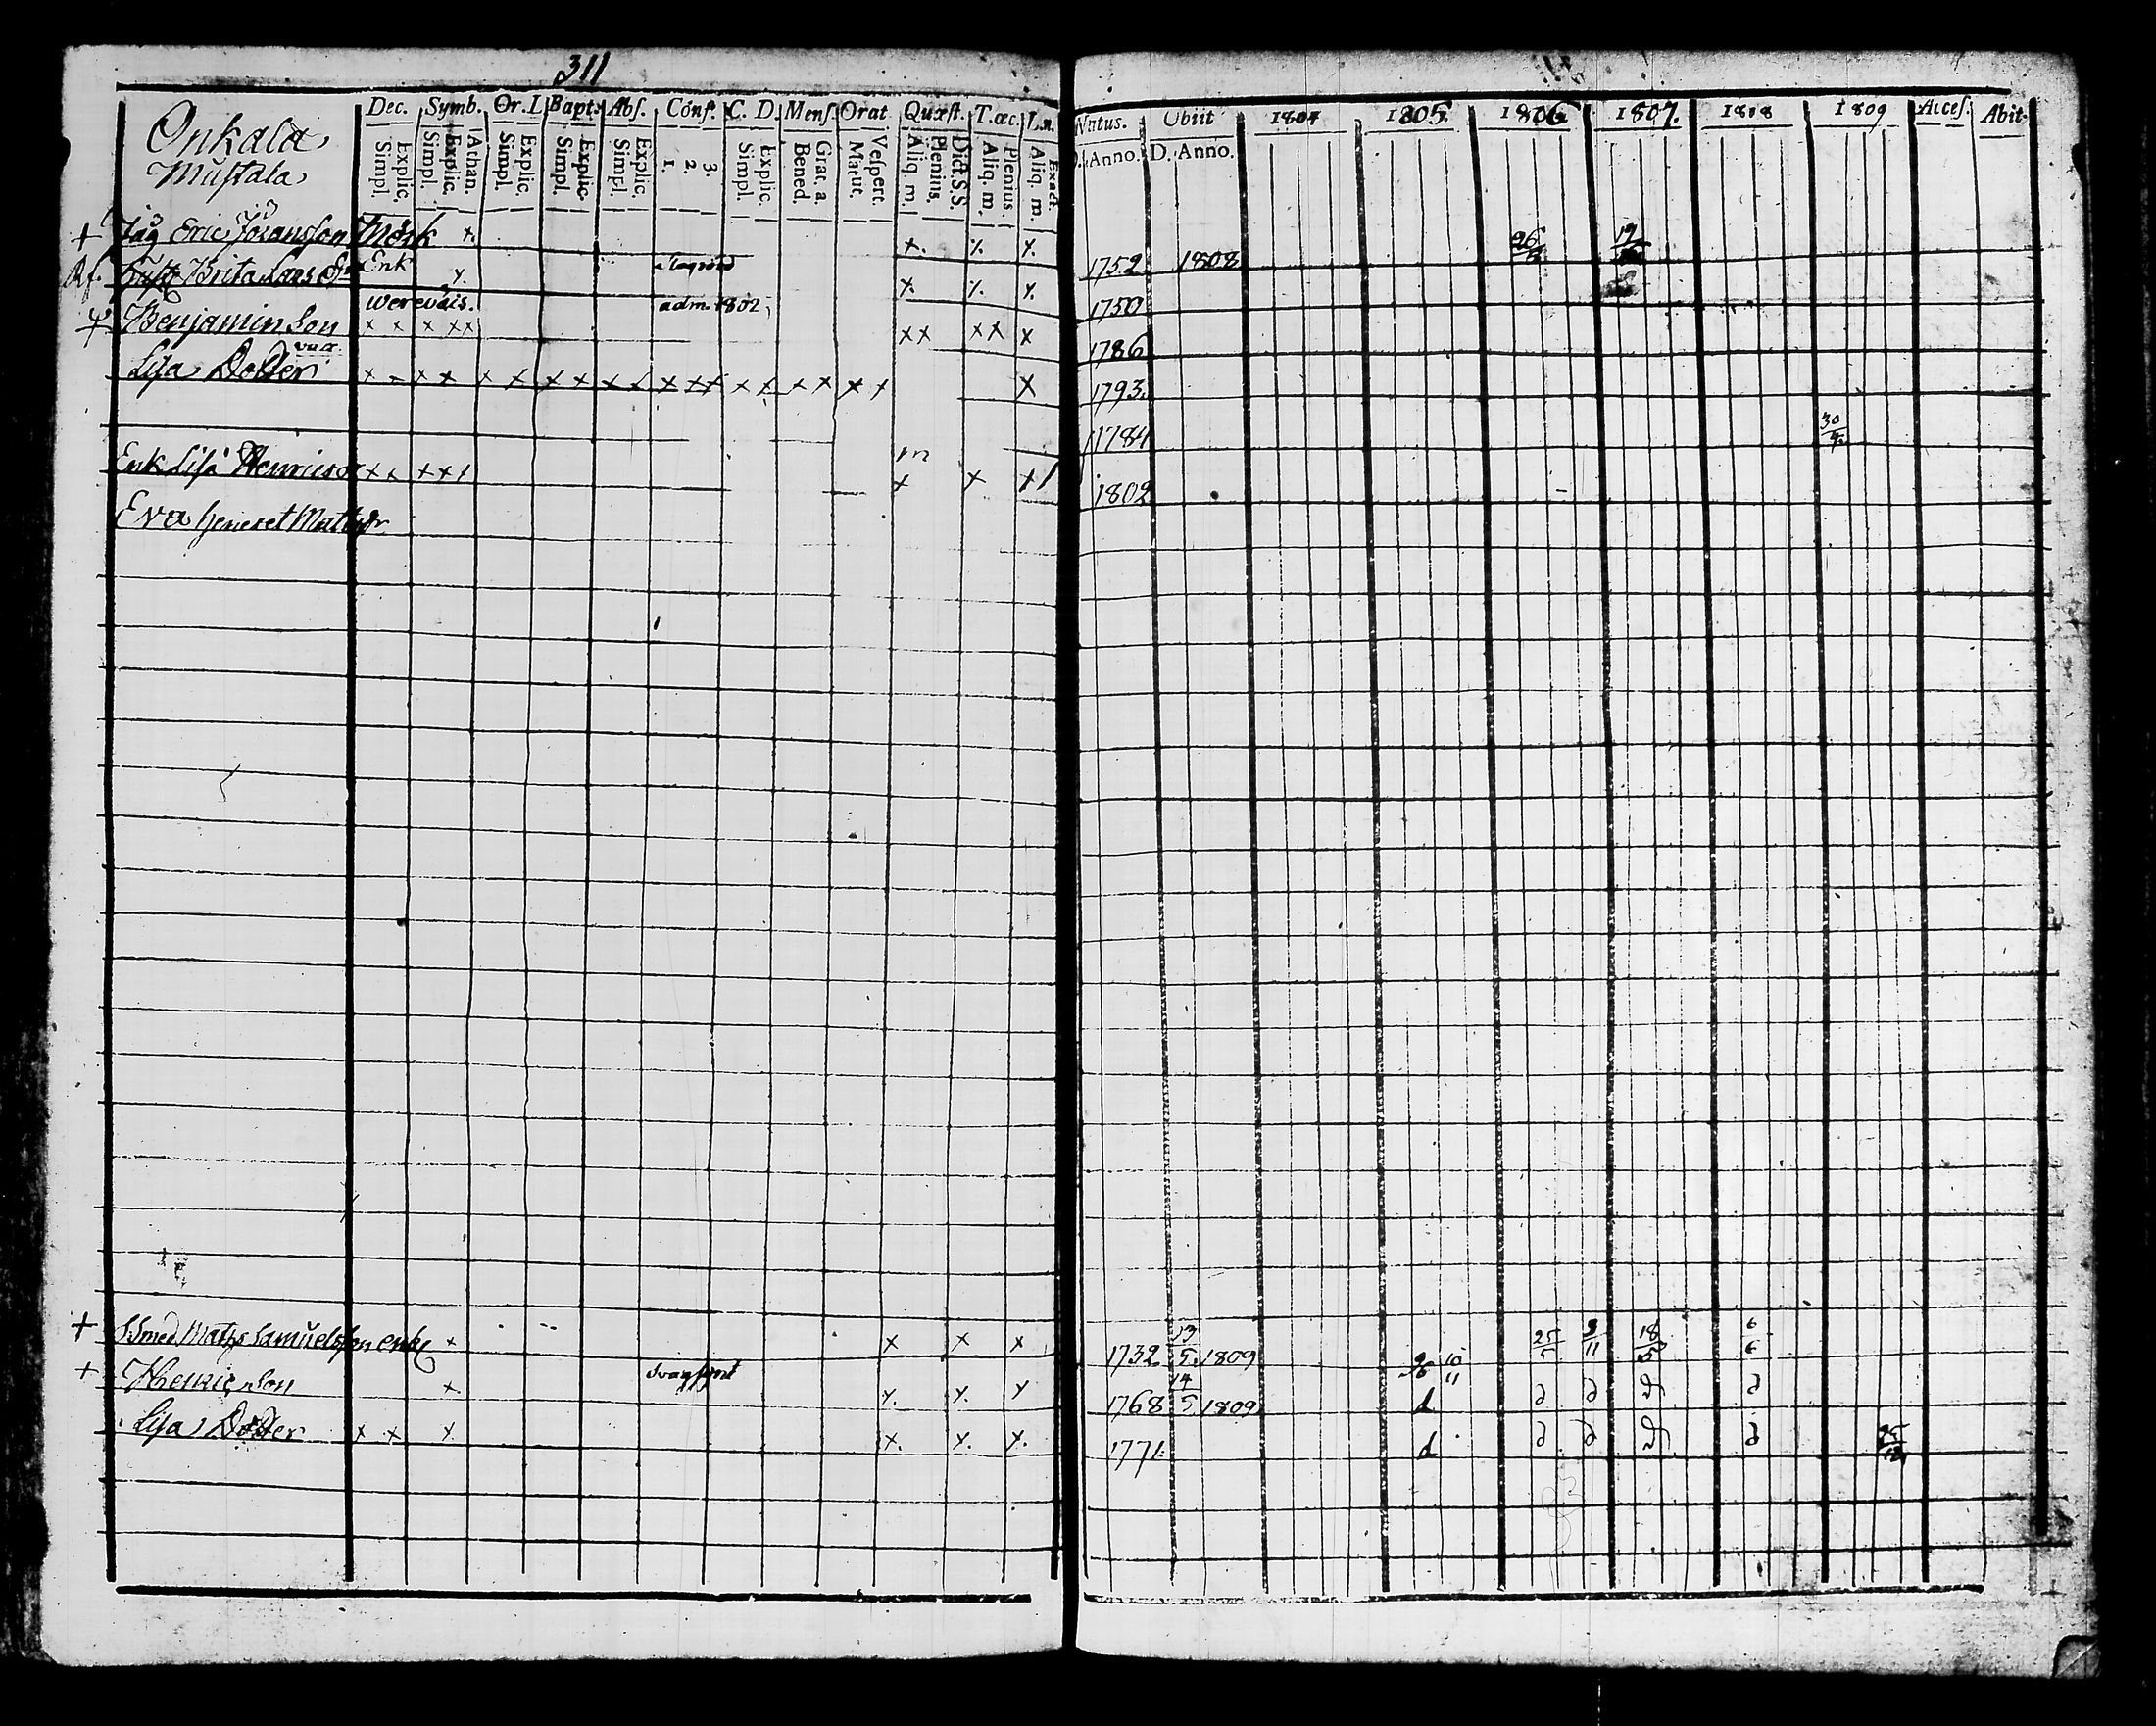 311
Dec. Symb. Or. D. Bapt. Abſ. Conf. C. D. Menſ. Orat. Quæſt. T. œc. L. n. Natus. Obiit 1804 1805. 1806 1807. 1808 1809 Acceſ. Abit.
Explic. Simpl. Athan. Explic. Simpl. Explic. Simpl. Explic. Simpl. Explic. Simpl. 3. 2. 1. Explic. Simpl. Grat. a. Bened. Veſpert. Matut. Dict. S.S. Plenius. Aliq. m. Plenius. Aliq. m. Exact. Aliq. m. D. Anno. D. Anno.
Onkala
Muſtala
+ Eric Jöransson Mörk x. x. x. x. 1752 1808 26 19
Rf. Huſt Brita Lars dr Enk x. x. x. x. 1750
Benjamin Son werevais. adm. 1802, x x x x x x x x x x 1786
Liſa Dotter x x x x x x x x x x x x x x x x x x x x 1793.
1784 30/4
Enk Liſa Henricsdr x x x x x m x x x 1802
Eva Matts dr
+ Smed Matts Samuelsſon enkl x x x x 1732 13/5 1809 10/11 25/5 3/11 18/5 6/6
+ Henric Son svagsynt x x. x. x 1768 14/5 1809 d d d d d
Liſa Dotter x x x x. x. x. 1771. d d d d d 25/12